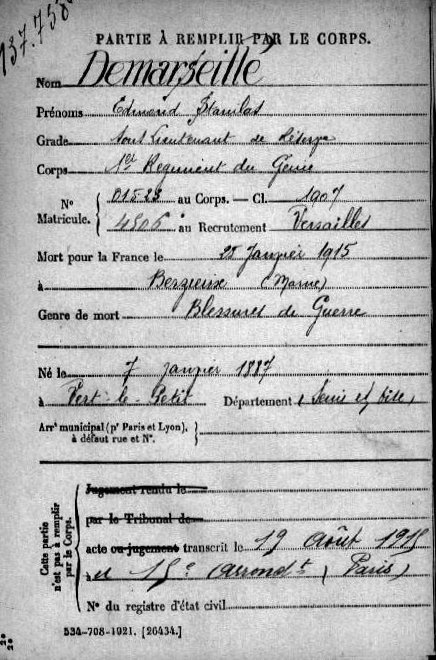 137.758
PARTIE À REMPLIR PAR LE CORPS.
Nom Demarseille
Prénoms Edmond Stanilas
Grade Sous Lieutenant de Réserve
Corps 1er Régiment du Génie
N° Matricule. { 01523 au Corps. — Cl. 1907
4506 au Recrutement Versailles
Mort pour la France le 25 Janvier 1915
à (Marne)
Genre de mort Blessures de Guerre
Né le 7 Janvier 1887
à Vert-le-Petit Département (Seine et Oise)
Arrt municipal (pr Paris et Lyon), à défaut rue et N°. {
Cette partie n'est pas à remplir par le Corps.
Jugement rendu le
par le Tribunal de
acte ou jugement transcrit le 19 Août 1915
15e arrondt (Paris)
N° du registre d'état civil
534-708-1921. [26434.]